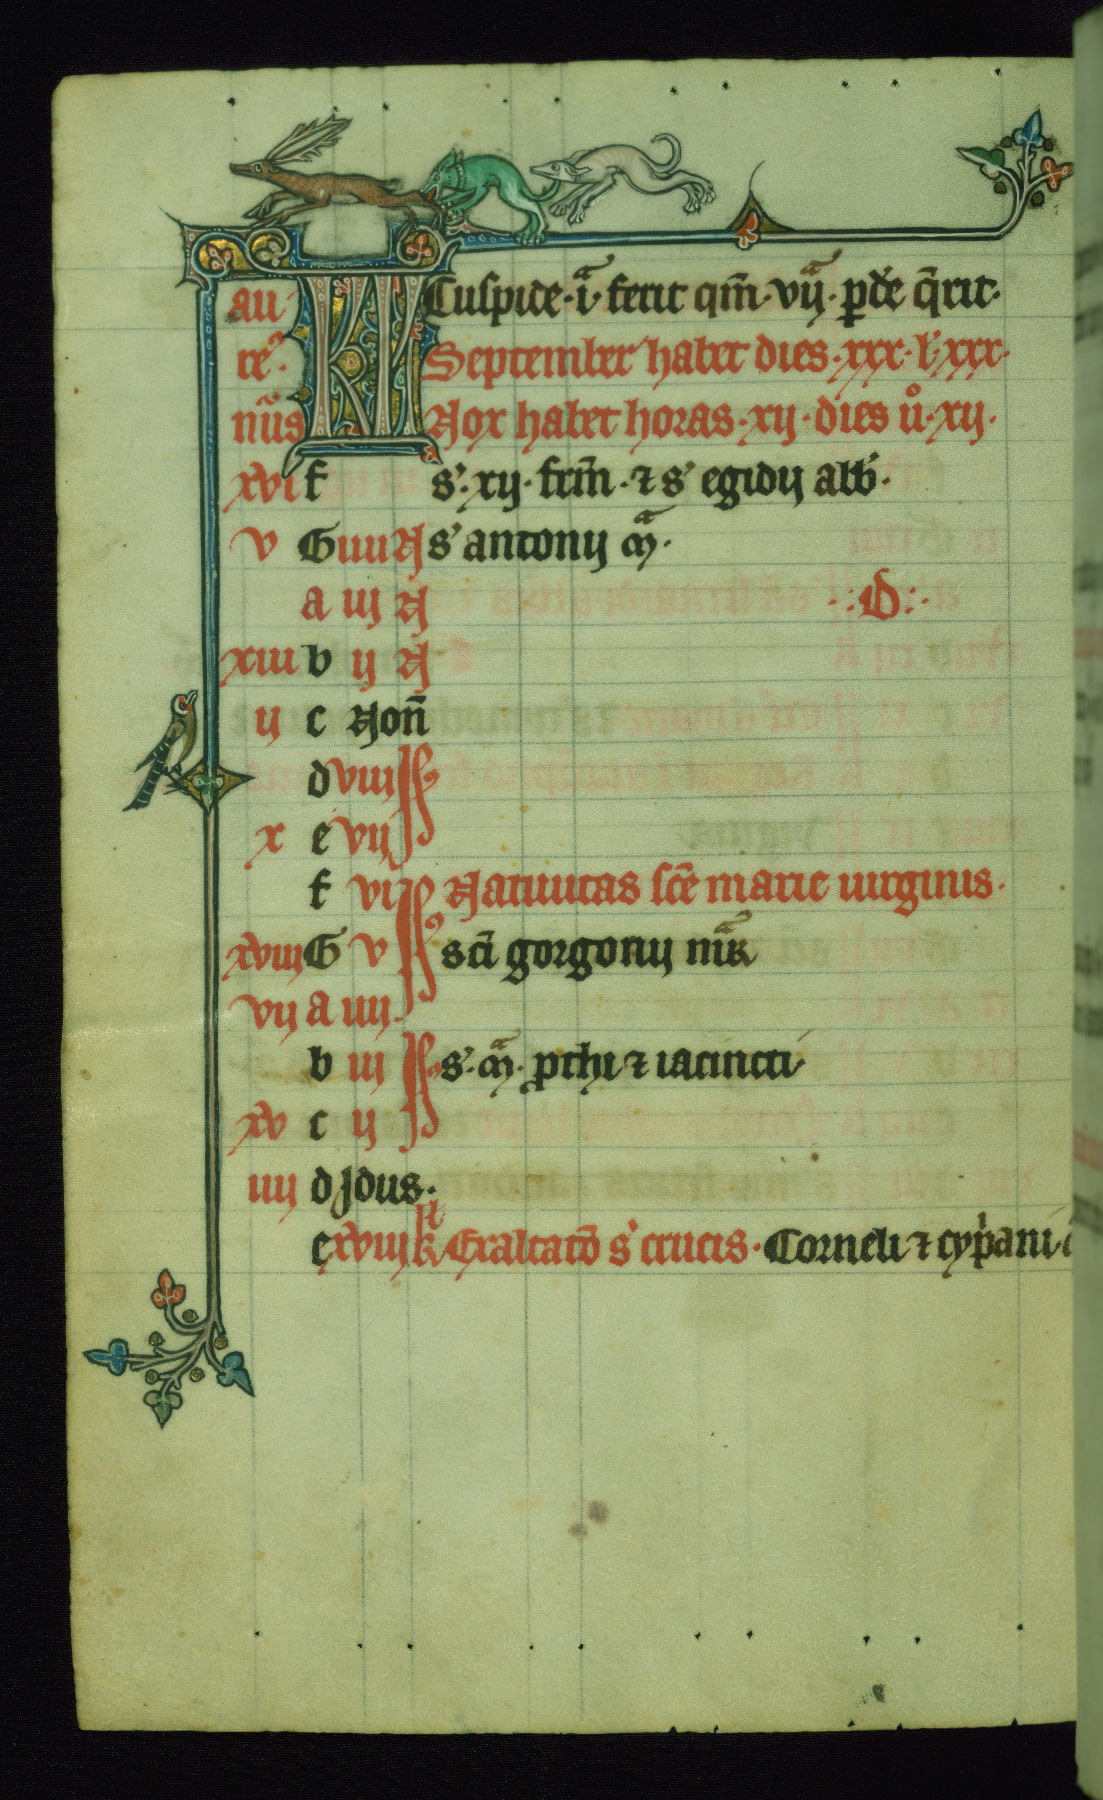 au KL Cuspide · ia · ferit qm̄ · vija · ꝑde q̄rit ·
re9 · September habet dies · xxx · l' xxx ·
nūs Nox habet horas · xij · dies uo · xij ·
xvi f s' · xij · frm̄ · ⁊ s' egidij abb' ·
v G iiii N s' antonij ma ·
a iij N · D ·
xiii b ij N
ij c Non̄
d viij Id9
x e vij
f vi Id9 Natiuitas sc̄e marie uirginis ·
xviij G v sc̄i gorgonij mar̄
vij a iiij
b iij Id9 s' · ma · ꝓthi ⁊ iacincti
xv c ij
iiij d Idus ·
e xviij kl Exaltatō s' crucis · Corneli ⁊ cyp'ani ·